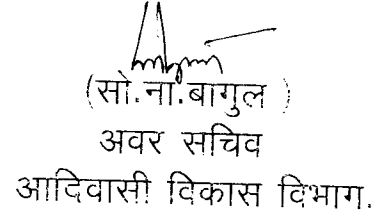 (सो.ना.बागुल )
अवर सचिव
आदिवासी विकास विभाग.